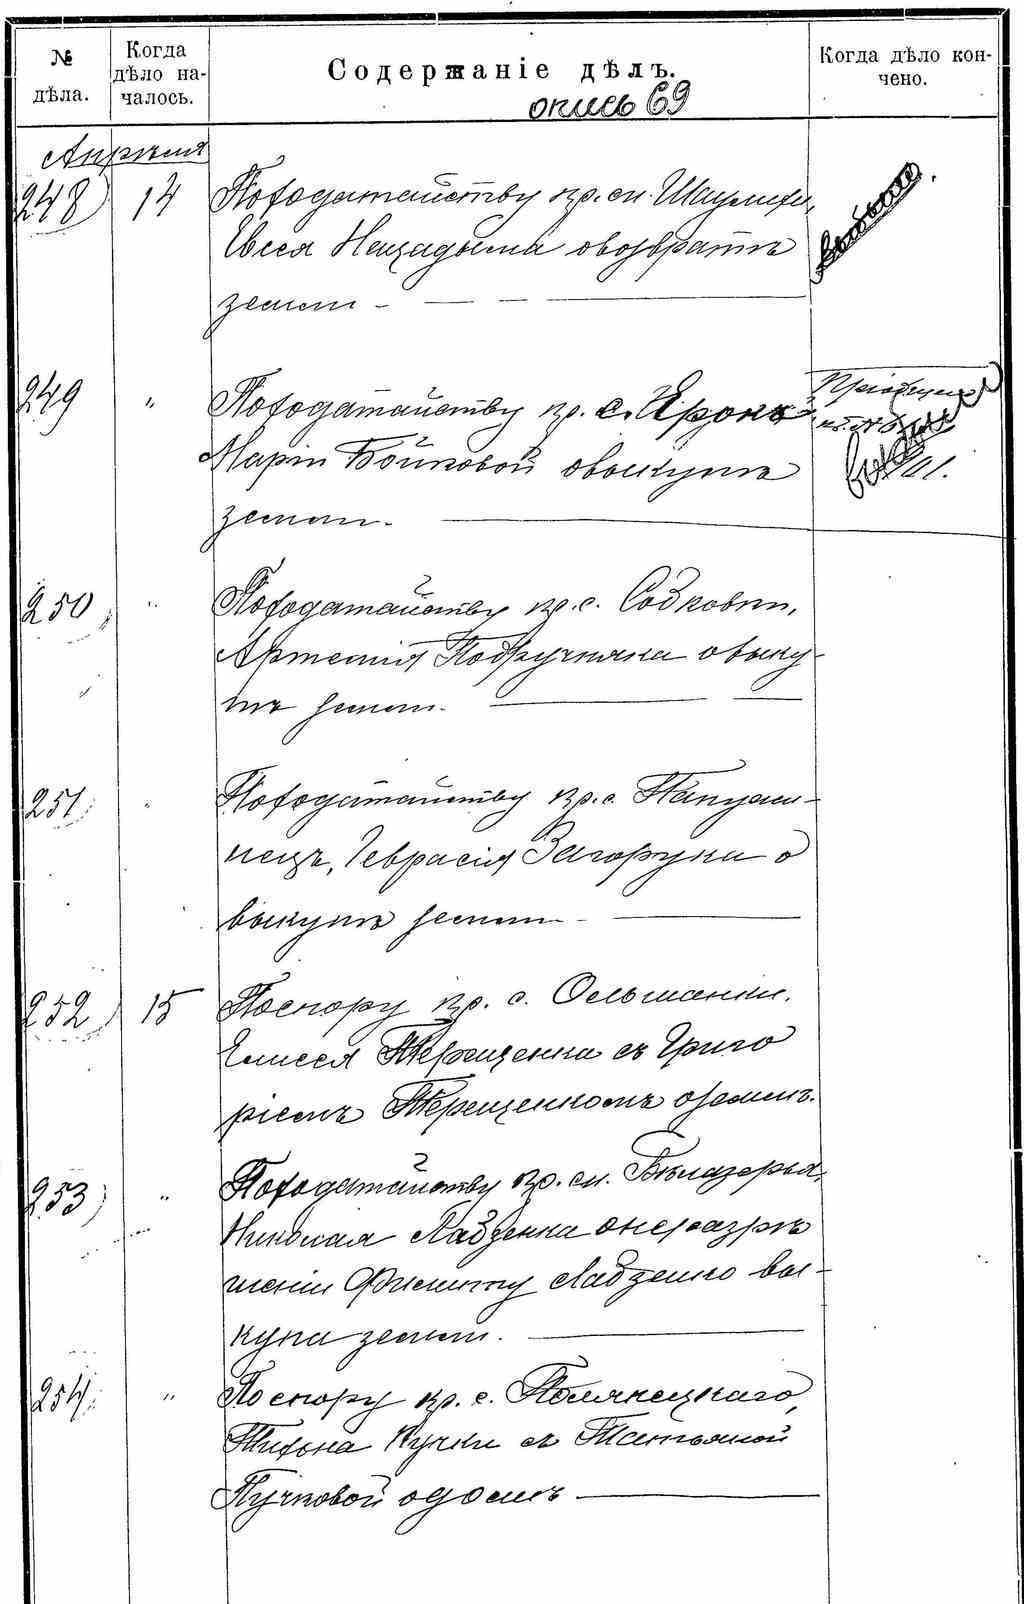 № дѣла.
Когда дѣло на-
чалось.
Содержаніе дѣлъ.
Когда дѣло кон-
чено.
опись 69
Апрѣля
248 14 По ходатайству кр. м.
Евсея о возвратѣ
земли -
249 " По ходатайству кр. с. Ярокъ
Маріи Бойковой о выкупѣ
земли.
250 " По ходатайству кр. с.
Артемія о выку-
пѣ земли.
251 " По ходатайству кр. с. Папужи-
нецъ, Гервасія Загоруки о
выкупѣ земли -
252 15 По спору кр. с. Ольшанки,
Елисея Терещенка съ Григо
ріемъ Терещенкомъ о землѣ.
253 " По ходатайству кр. м. Бѣлазерья,
Николая Ладзенка о неразрѣ
шеніи Филиппу Ладзенко вы-
купа земли.
254 " По спору кр. с. Полянецкаго,
Тихона Пучки съ Татьяной
Пучковой о домѣ